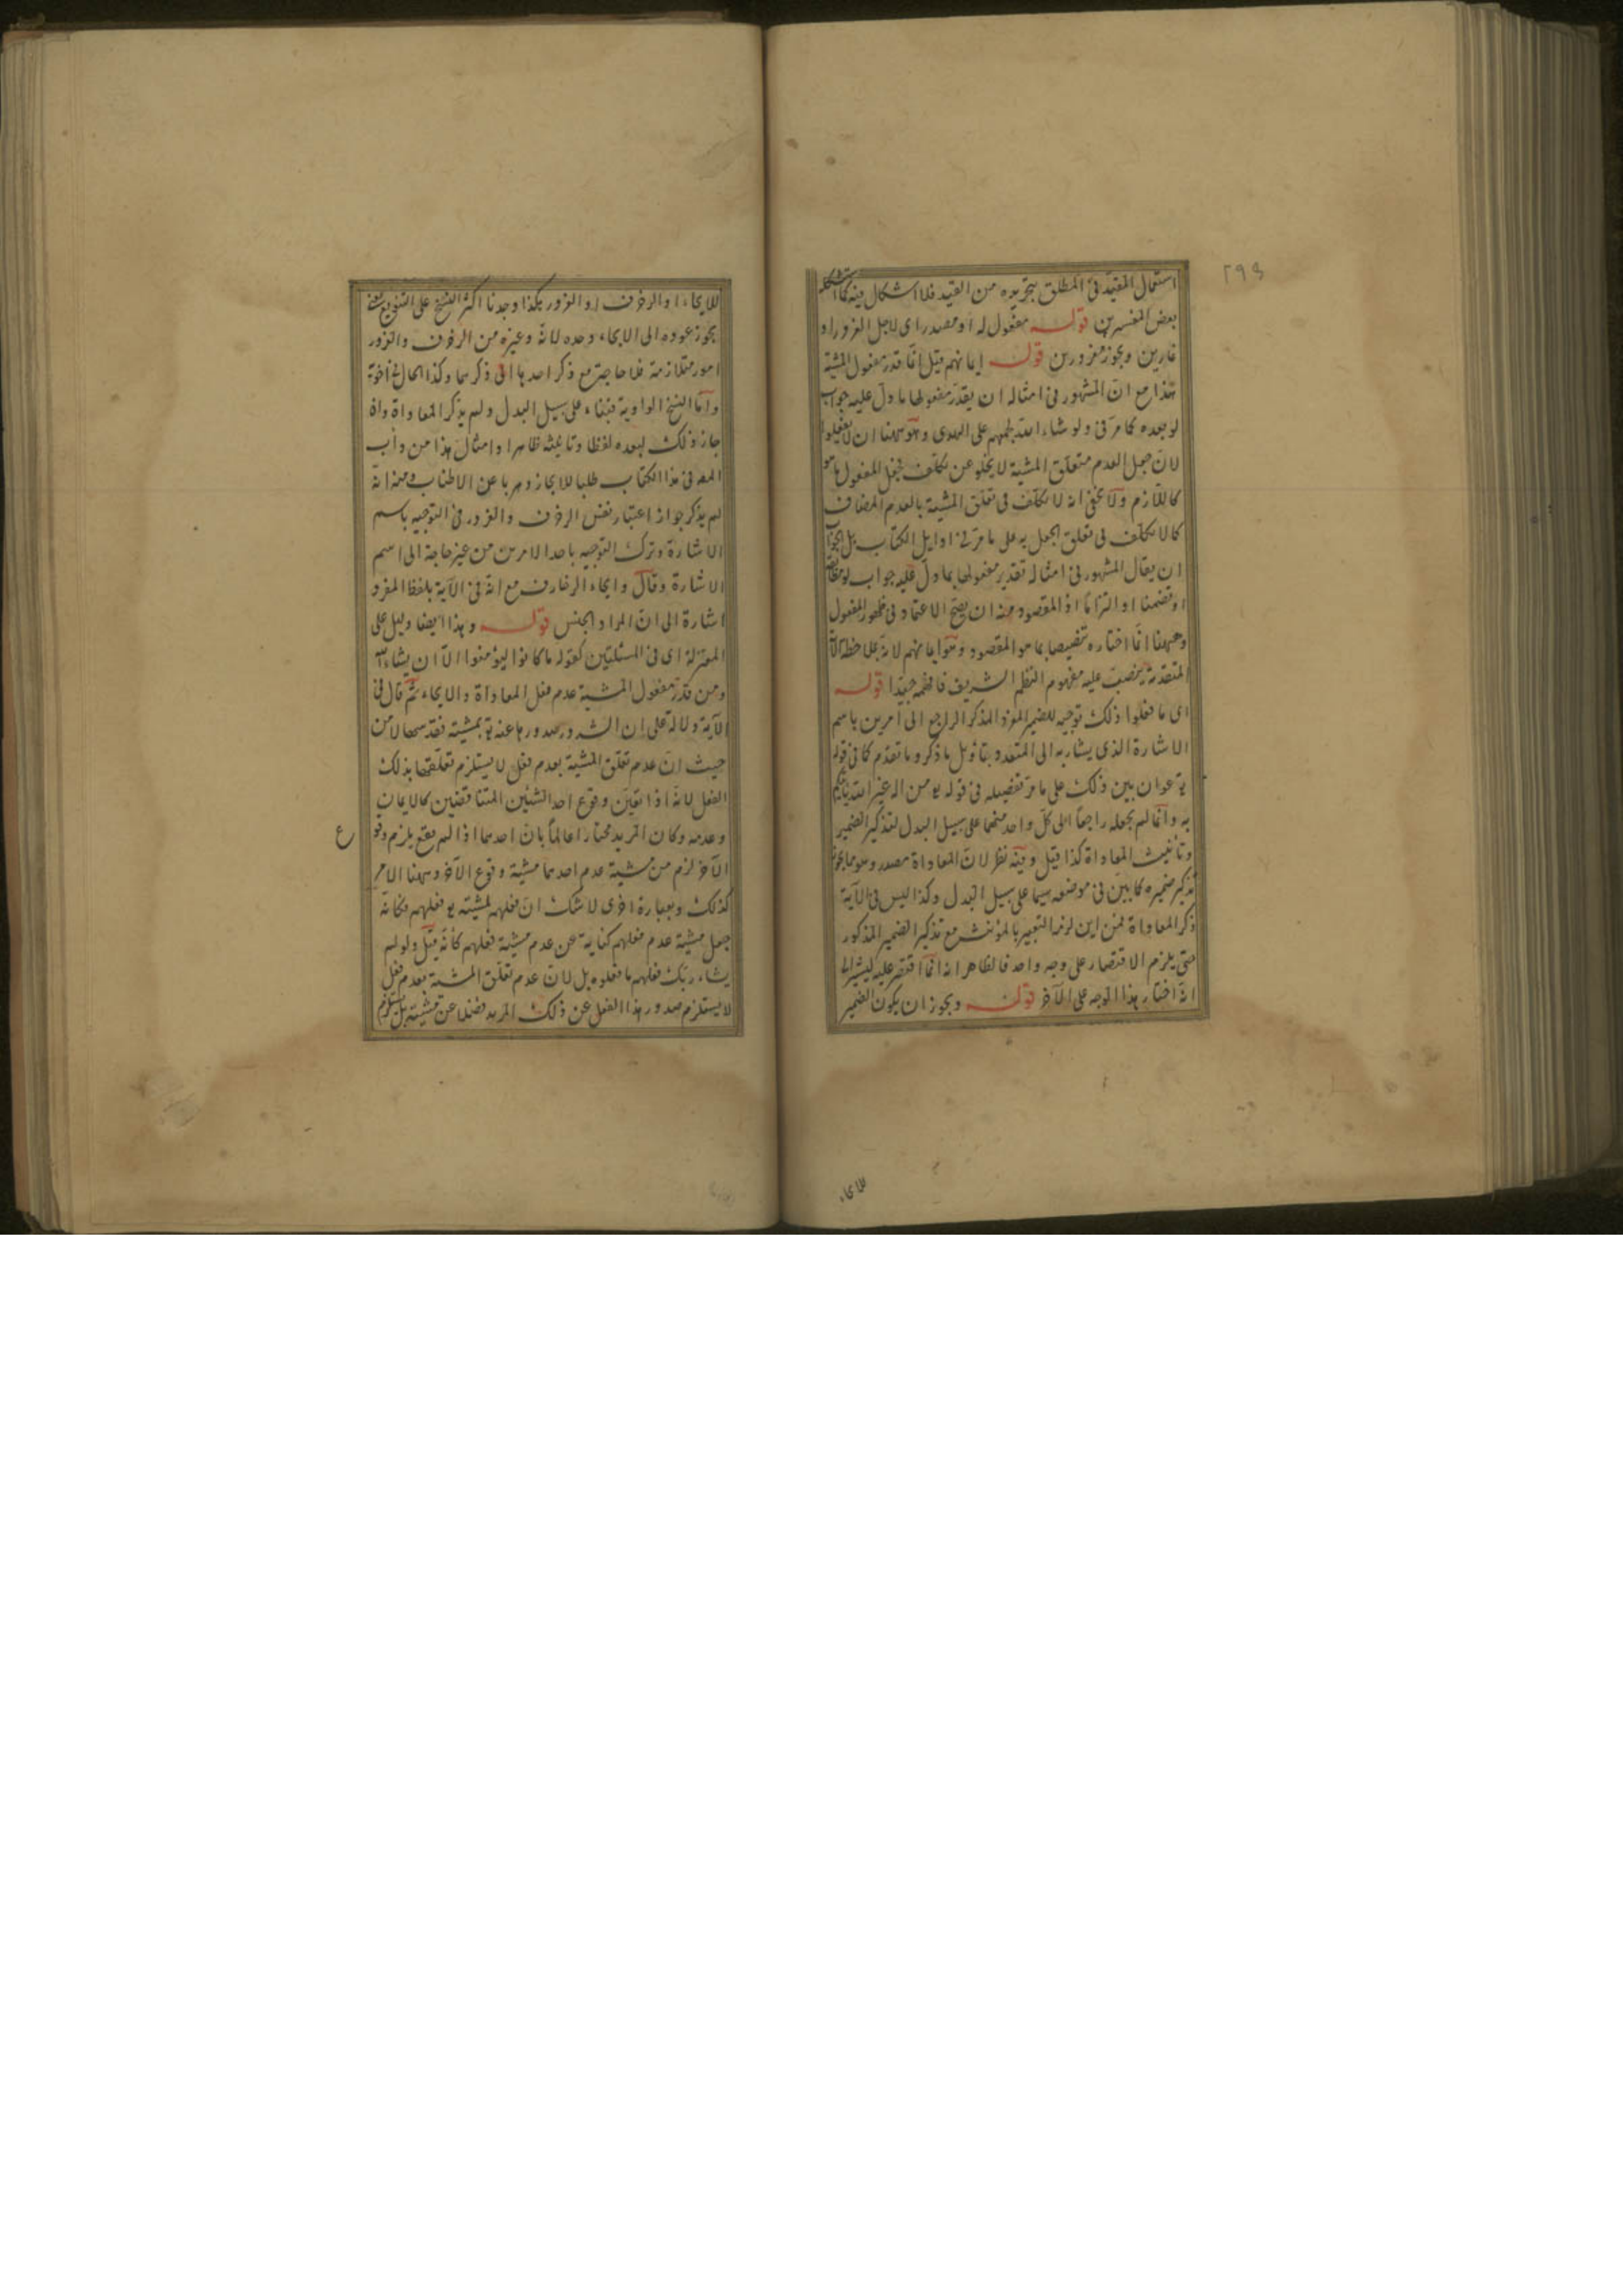 ٢٩٤
استعمال المقيد فى المطلق بتجريده من القيد فلا اشكال فيه كما استشكله
بعض المفسرين قوله مفعول له او مصدر اى لاجل الغرور او
غارين ويجوز مغرورين قوله ايمانهم قيل انما قدر مفعول المشية
هذا مع ان المشهور فى امثاله ان يقدر مفعولها ما دل عليه جواب
لو بعده كما مر فى ولو شاء الله لجمعهم على الهدى وهو ههنا ان لا يفعلوا
لان جعل العدم متعلق المشية لا يخلو عن تكلف فجعل المفعول ما هو
كاللازم ولا يخفى انه لا تكلف فى تعلق المشية بالعدم المضاف
كما لا تكلف فى تعلق الجعل به على ما مر فى اوايل الكتاب بل الجواب
ان يقال المشهور فى امثاله تقدير مفعولها بما دل عليه جواب لو مطابقة
او تضمنا او التزاما اذ المقصود منه ان يصح الاعتماد فى ظهور المفعول
وههنا انما اختاره تنصيصا بما هو المقصود وهو ايمانهم لانه بملاحظة الآية
المتقدمة ينصب عليه مفهوم النظم الشريف فافهمه جيدا قوله
اى ما فعلوا ذلك توجيه للضمير المفرد المذكر الراجع الى امرين باسم
الاشارة الذى يشار به الى المتعدد بتأويل ما ذكر وما تقدم كما فى قوله
تع عوان بين ذلك على ما مر تفصيله فى قوله تع من اله غير الله يأتيكم
به وانما لم يجعله راجعا الى كل واحد منهما على سبيل البدل لتذكير الضمير
وتأنيث المعاداة كذا قيل وفيه نظر لان المعاداة مصدر وهو مما يجوز
تذكير ضميره كما بين فى موضعه سيما على سبيل البدل وكذا ليس فى الآية
ذكر المعاداة فمن اين لزم التعبير بالمؤنث مع تذكير الضمير المذكور
حتى يلزم الاقتصار على وجه واحد فالظاهر انه انما اقتصر عليه ليشير الى
انه اختار هذا الوجه على الآخر قوله ويجوز ان يكون الضمير
للايحاء
للايحاء او الزخرف او الغرور هكذا وجدنا اكثر النسخ على التنويع
يجوز عوده الى الايحاء وحده لانه وغيره من الزخرف والغرور
امور متلازمة فلا حاجة مع ذكر احدها الى ذكرهما وكذا الحال فى اخوته
واما النسخ الواوية فبناء على سبيل البدل ولم يذكر المعاداة وان
جاز ذلك لبعده لفظا وتانيثه ظاهرا وامثال هذا من دأب
المصه فى هذا الكتاب طلبا للايجاز وهربا عن الاطناب ومنه انه
لم يذكر جواز اعتبار نفس الزخرف والغرور فى التوجيه باسم
الاشارة وترك التوجيه باحد الامرين من غير حاجة الى اسم
الاشارة وقال وايحاء الزخارف مع انه فى الآية بلفظ المفرد
اشارة الى ان المراد الجنس قوله وهذا ايضا دليل على
المعتزلة اى فى المسئلتين كقوله ما كانوا ليؤمنوا الا ان يشاء الله
ومن قدر مفعول المشية عدم فعل المعاداة والايحاء ثم قال فى
الآية دلالة على ان الشرور صدورها عنه تع بمشيته فقد سها لا من
حيث ان عدم تعلق المشية بعدم فعل لا يستلزم تعلقها بذلك
الفعل لانه اذا تعين وقوع احد الشيئين المتناقضين كالايمان
وعدمه وكان المريد مختارا عالما بان احدهما اذا لم يقع يلزم وقو
ع
الآخر لزم من مشية عدم احدهما مشية وقوع الآخر وههنا الامر
كذلك وبعبارة اخرى لا شك ان فعلهم لمشيته تع فعلهم فكأنه
جعل مشية عدم فعلهم كناية عن عدم مشية فعلهم كأنه قيل ولو لم
يشاء ربك فعلهم ما فعلوه بل لان عدم تعلق المشية بعدم فعل
لا يستلزم صدور هذا الفعل عن ذلك المريد فضلا عن مشيته بل يستلزم